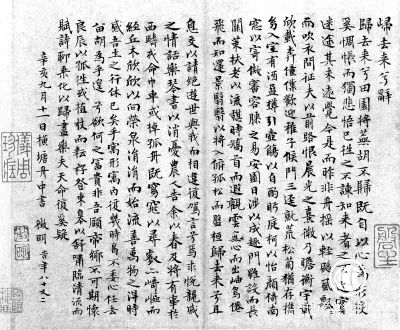 歸去來兮辭
歸去來兮田園將蕪胡不歸既自以心為形役
奚惆悵而獨悲悟已往之不諫知來者之可追實
迷途其未遠覺今是而昨非舟搖搖以輕颺風飄飄
而吹衣問征夫以前路恨晨光之熹微乃瞻衡宇載
欣載奔僮僕歡迎稚子候門三逕就荒松菊猶存攜
幼入室有酒盈樽引壺觴以自酌眄庭柯以怡顏倚南
窗以寄傲審容膝之易安園日涉以成趣門雖設而長
關策扶老以流憩時矯首而遐觀雲無心而出岫鳥倦
飛而知還景翳翳以將入撫孤松而盤桓歸去來兮
息交以請絕遊世與我而相違復駕言兮焉求悅親戚
之情話樂琴書以消憂農人告余以春及將有事於
西疇或命巾車或棹孤舟既窈窕以尋壑亦崎嶇而
經丘木欣欣以向榮泉涓涓而始流善萬物之得時
感吾生之行休已矣乎寓形宇內復幾時曷不委心任去
留胡為乎遑遑兮欲何之富貴非吾願帝鄉不可期懷
良辰以孤往或植杖而耘耔登東皋以舒嘯臨清流而
賦詩聊乘化以歸盡樂夫天命復奚疑
辛亥九月十一日橫塘舟中書 徵明 時年八十又二